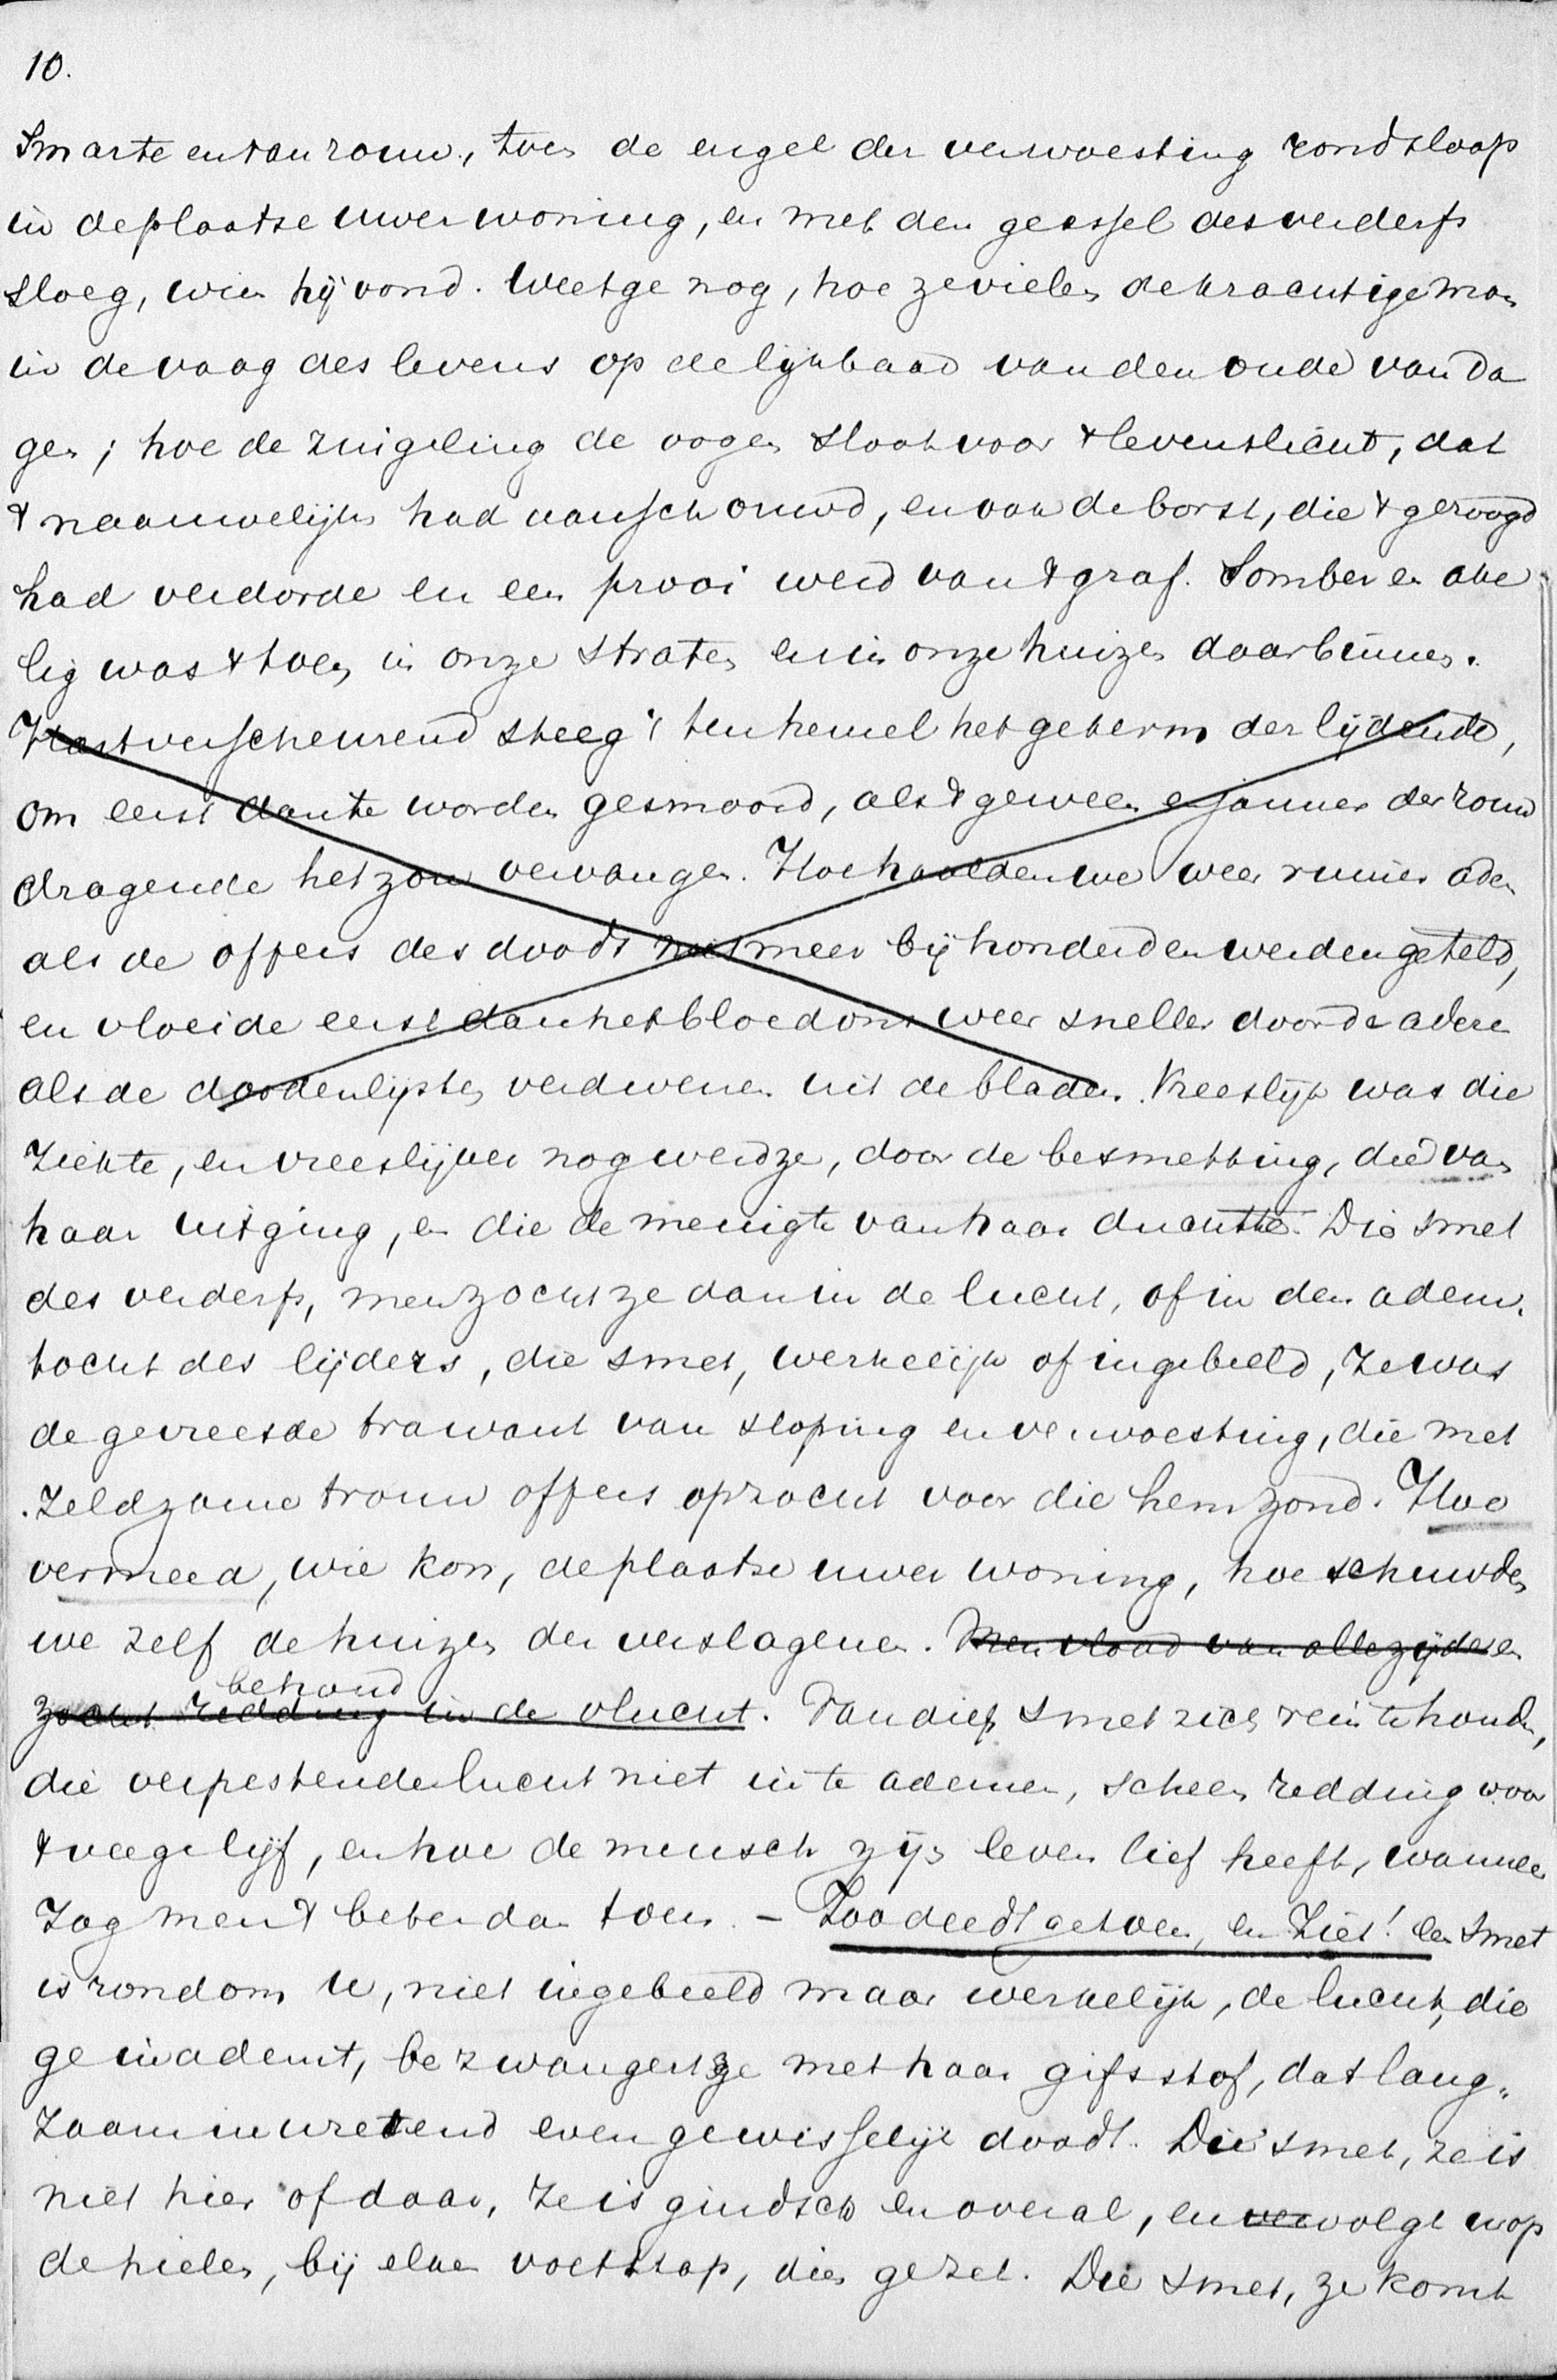 10.
Smarte en van rouw, toen de engel der verwoesting rondsloop
in de plaatse uwer woning, en met den geessel des verderfs
sloeg, wien hij vond. Weet ge nog, hoe ze vielen de krachtige man
in de vaag des levens op de lijkbaar van den oude van da
gen; hoe de zuigeling de oogen sloot voor 't levenslicht, dat
't naauwelijks had aanschouwd, en aan de borst, die 't gezoogd
had verdorde en een prooi werd van 't graf. Somber en ake
lig was 't toen in onze straten en in onze huizen daarbinnen.
Hartverscheurend steeg 't ten hemel het gekerm der lijdende,
om eerst dan te worden gesmoord, als 't geween en jammer der rouw
dragende het zou vervangen. Hoe haalden we weer ruimer adem
als de offers des doods niet meer bij honderden werden geteld,
en vloeide eerst dan het bloed ons weer sneller door de aderen
als de doodenlijsten verdwenen uit de bladen. Vreeslijk was die
Ziekte, en vreeslijker nog werd ze, door de besmetting, die van
haar uitging, en die de menigte van haar duchtte. Die smet
des verderfs, men zocht ze dan in de lucht, of in den adem-
tocht des lijders, die smet, werkelijk of ingebeeld, ze was
de gevreesde trawant van sloping en verwoesting, die met
zeldzame trouw offers opzocht voor die hem zond. Hoe
vermeed, wie kon, de plaatse uwer woning, hoe schuwden
we zelf de huizen der verslagenen. Men vlood van alle zijden en
behoud
zocht redding in de vlucht. Van die smet zich rein te houden,
die verpestende lucht niet in te ademen, scheen redding voor
't veege lijf, en hoe de mensch zijn leven lief heeft, wanneer
zag men 't beter dan toen. – Zoo deedt ge toen, en Ziet! een smet
is rondom u, niet ingebeeld maar werkelijk, de lucht, die
ge inademt, bezwangert ze met haar gifstof, dat lang-
zaam invretend even gewisselijk doodt. Die smet, ze is
niet hier of daar, ze is gindsch en overal, en vervolgt u op
de hielen, bij elken voetstap, dien ge zet. Die smet, ze komt